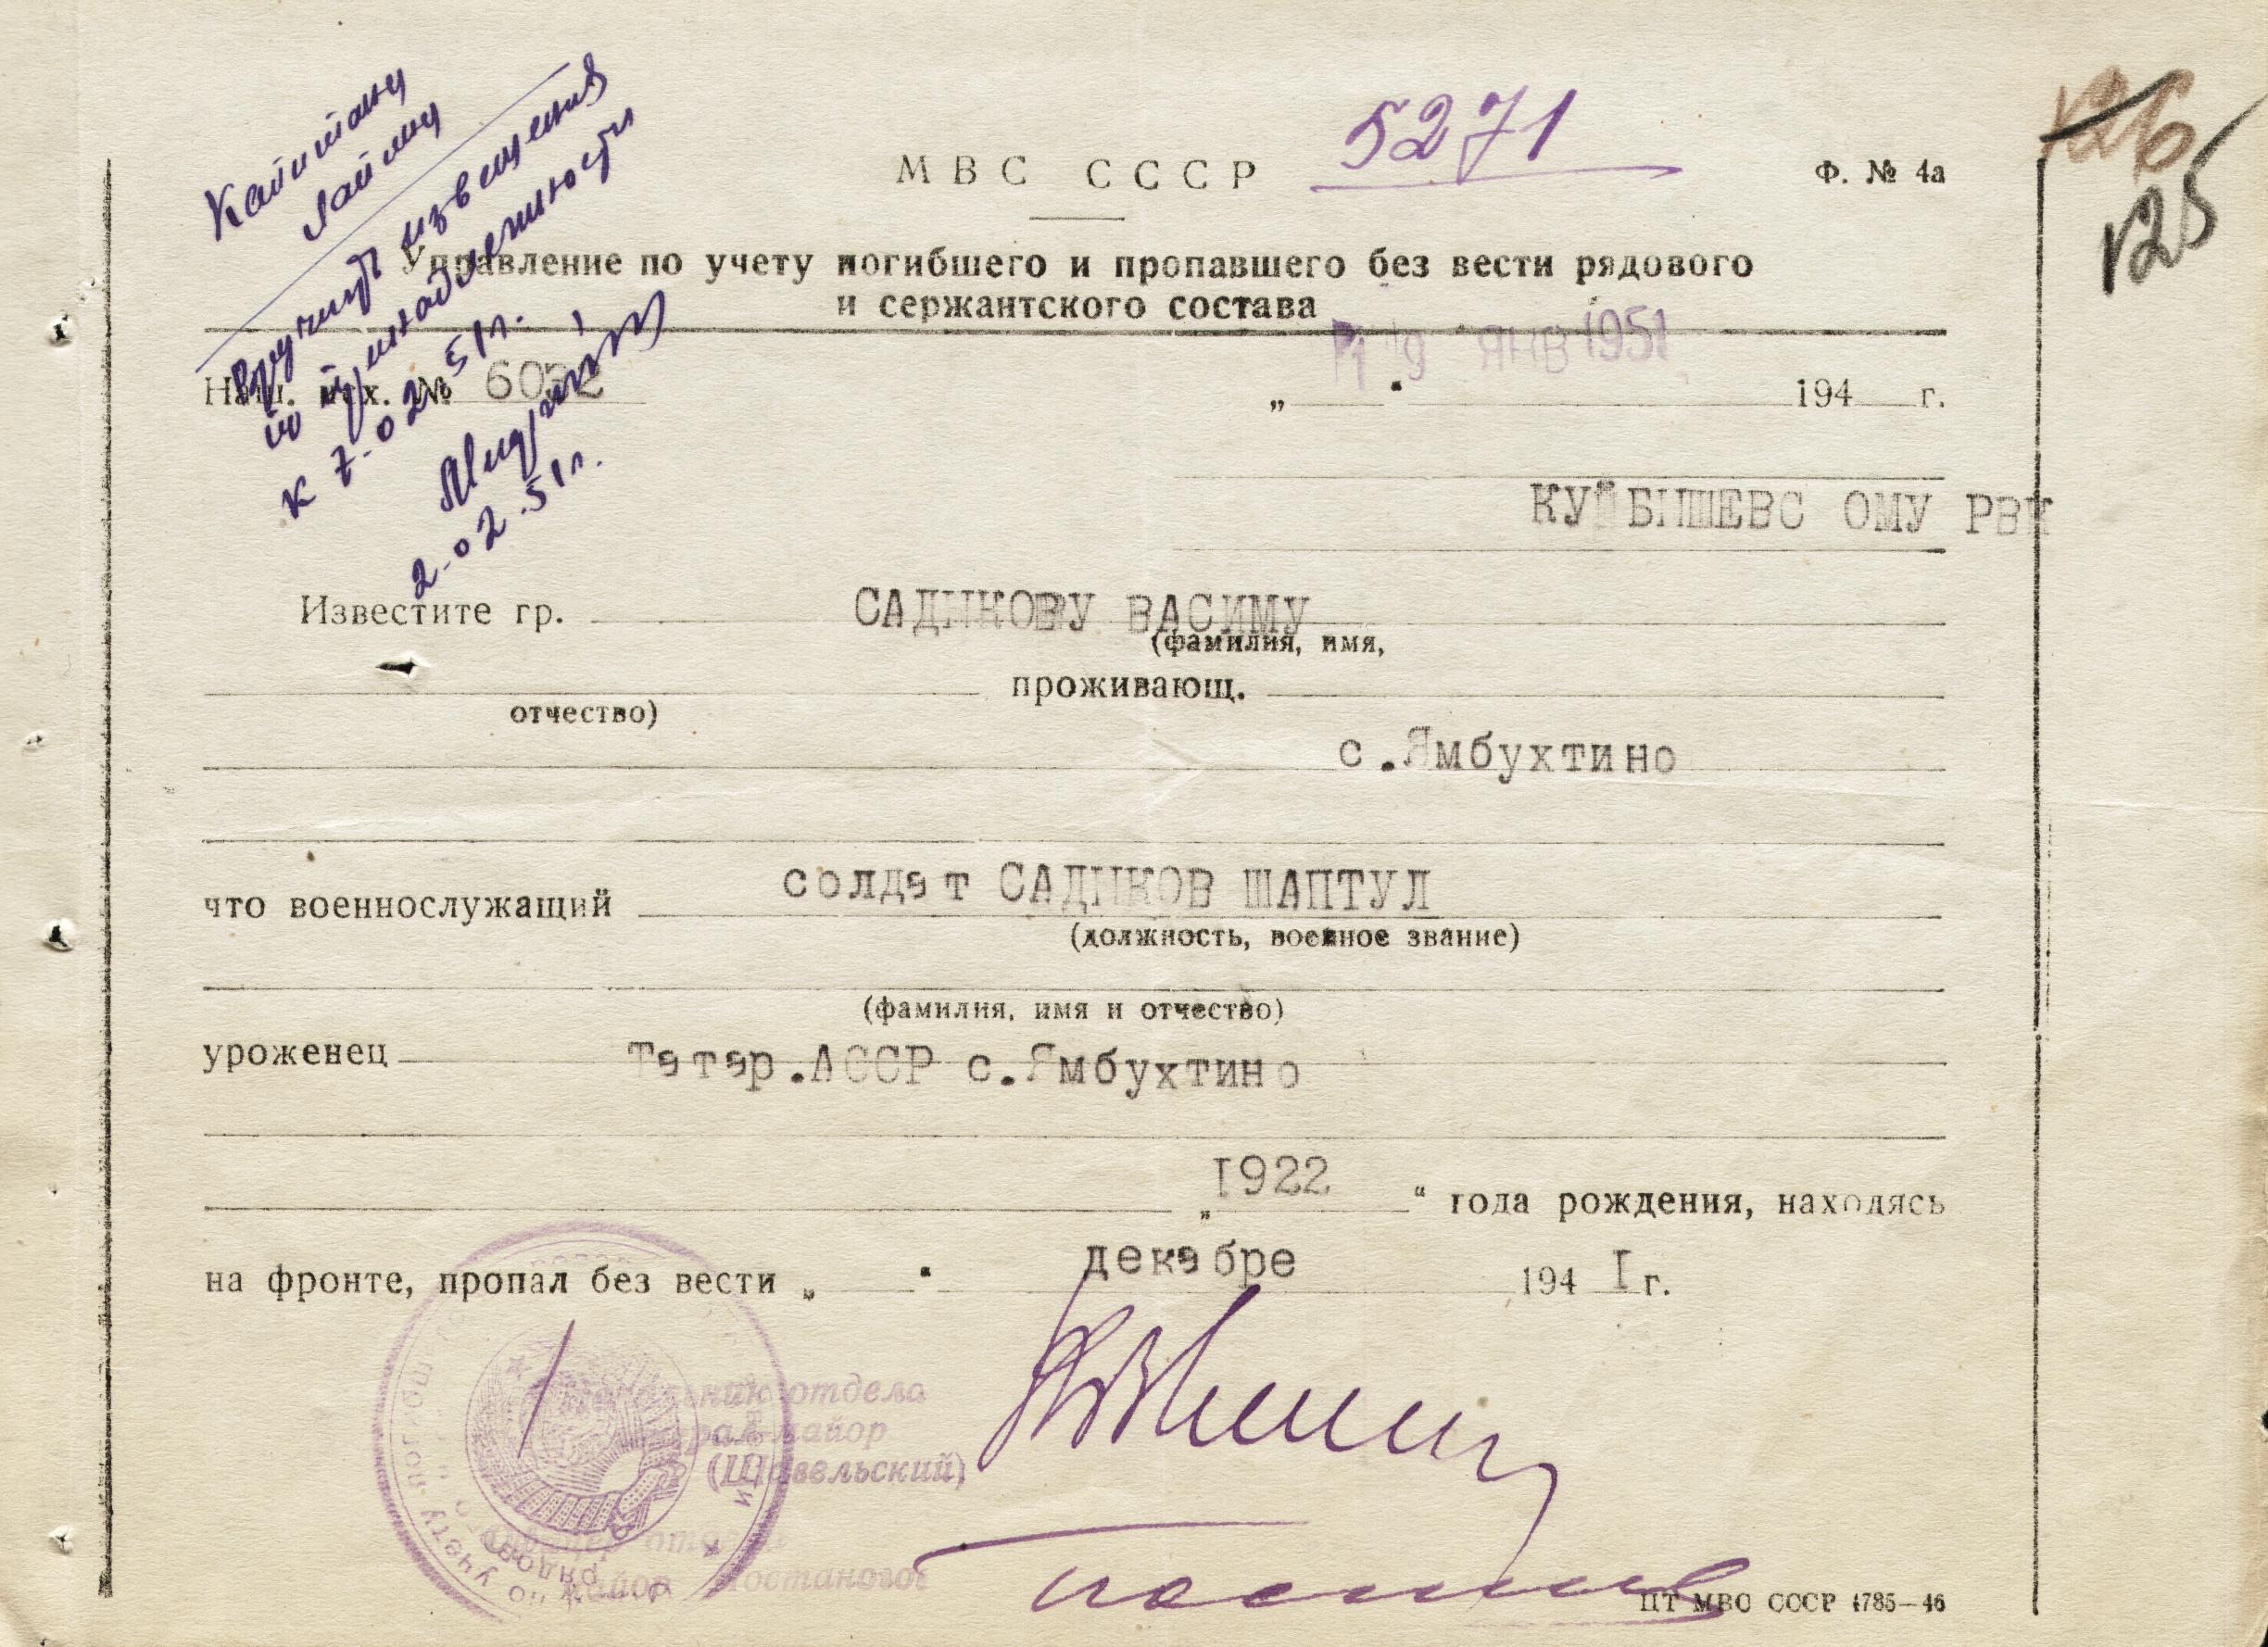 126
125
5271
МВС СССР
Ф. № 4а
Управление по учету погибшего и пропавшего без вести рядового
и сержантского состава
Капитану
Вручить извещения
по принадлежности
к 7-02.51г.
2-02.51г.
19 ЯНВ 1951
Наш. исх. №
„ “ 194 г.
КУЙБЫШЕВСКОМУ РВК
Известите гр. САДЫКОВУ ВАСИМУ
(фамилия, имя,
проживающ.
отчество)
с.Ямбухтино
что военнослужащий солдат САДЫКОВ ШАПТУЛ
(должность, военное звание)
(фамилия, имя и отчество)
уроженец Татар.АССР с.Ямбухтино
„ I922 “ года рождения, находясь
на фронте, пропал без вести „ “ декабре 194 I г.
Начальник отдела
майор
(Шавельский)
майор Постаногов
ЦТ МВС СССР 4785—46